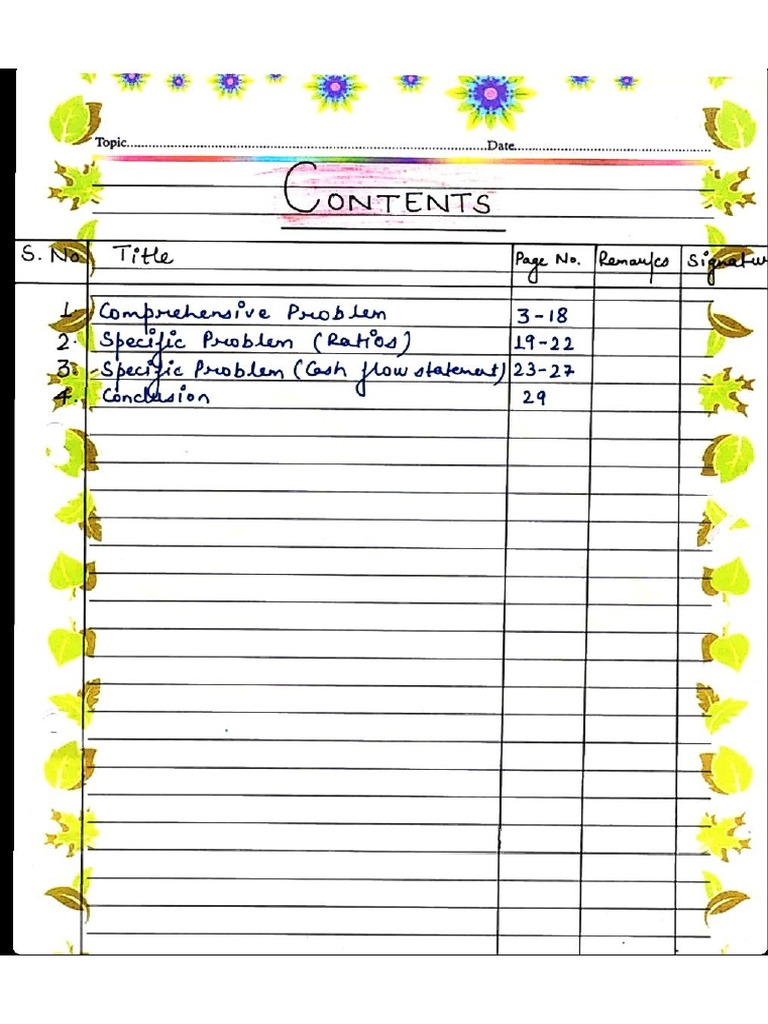 Topic................Date................
CONTENTS
S. No. Title Page No. Remarks Signatur
1. Comprehensive Problem 3-18
2. Specific Problem (Ratios) 19-22
3. Specific Problem (Cash flow statement) 23-27
4. Conclusion 29